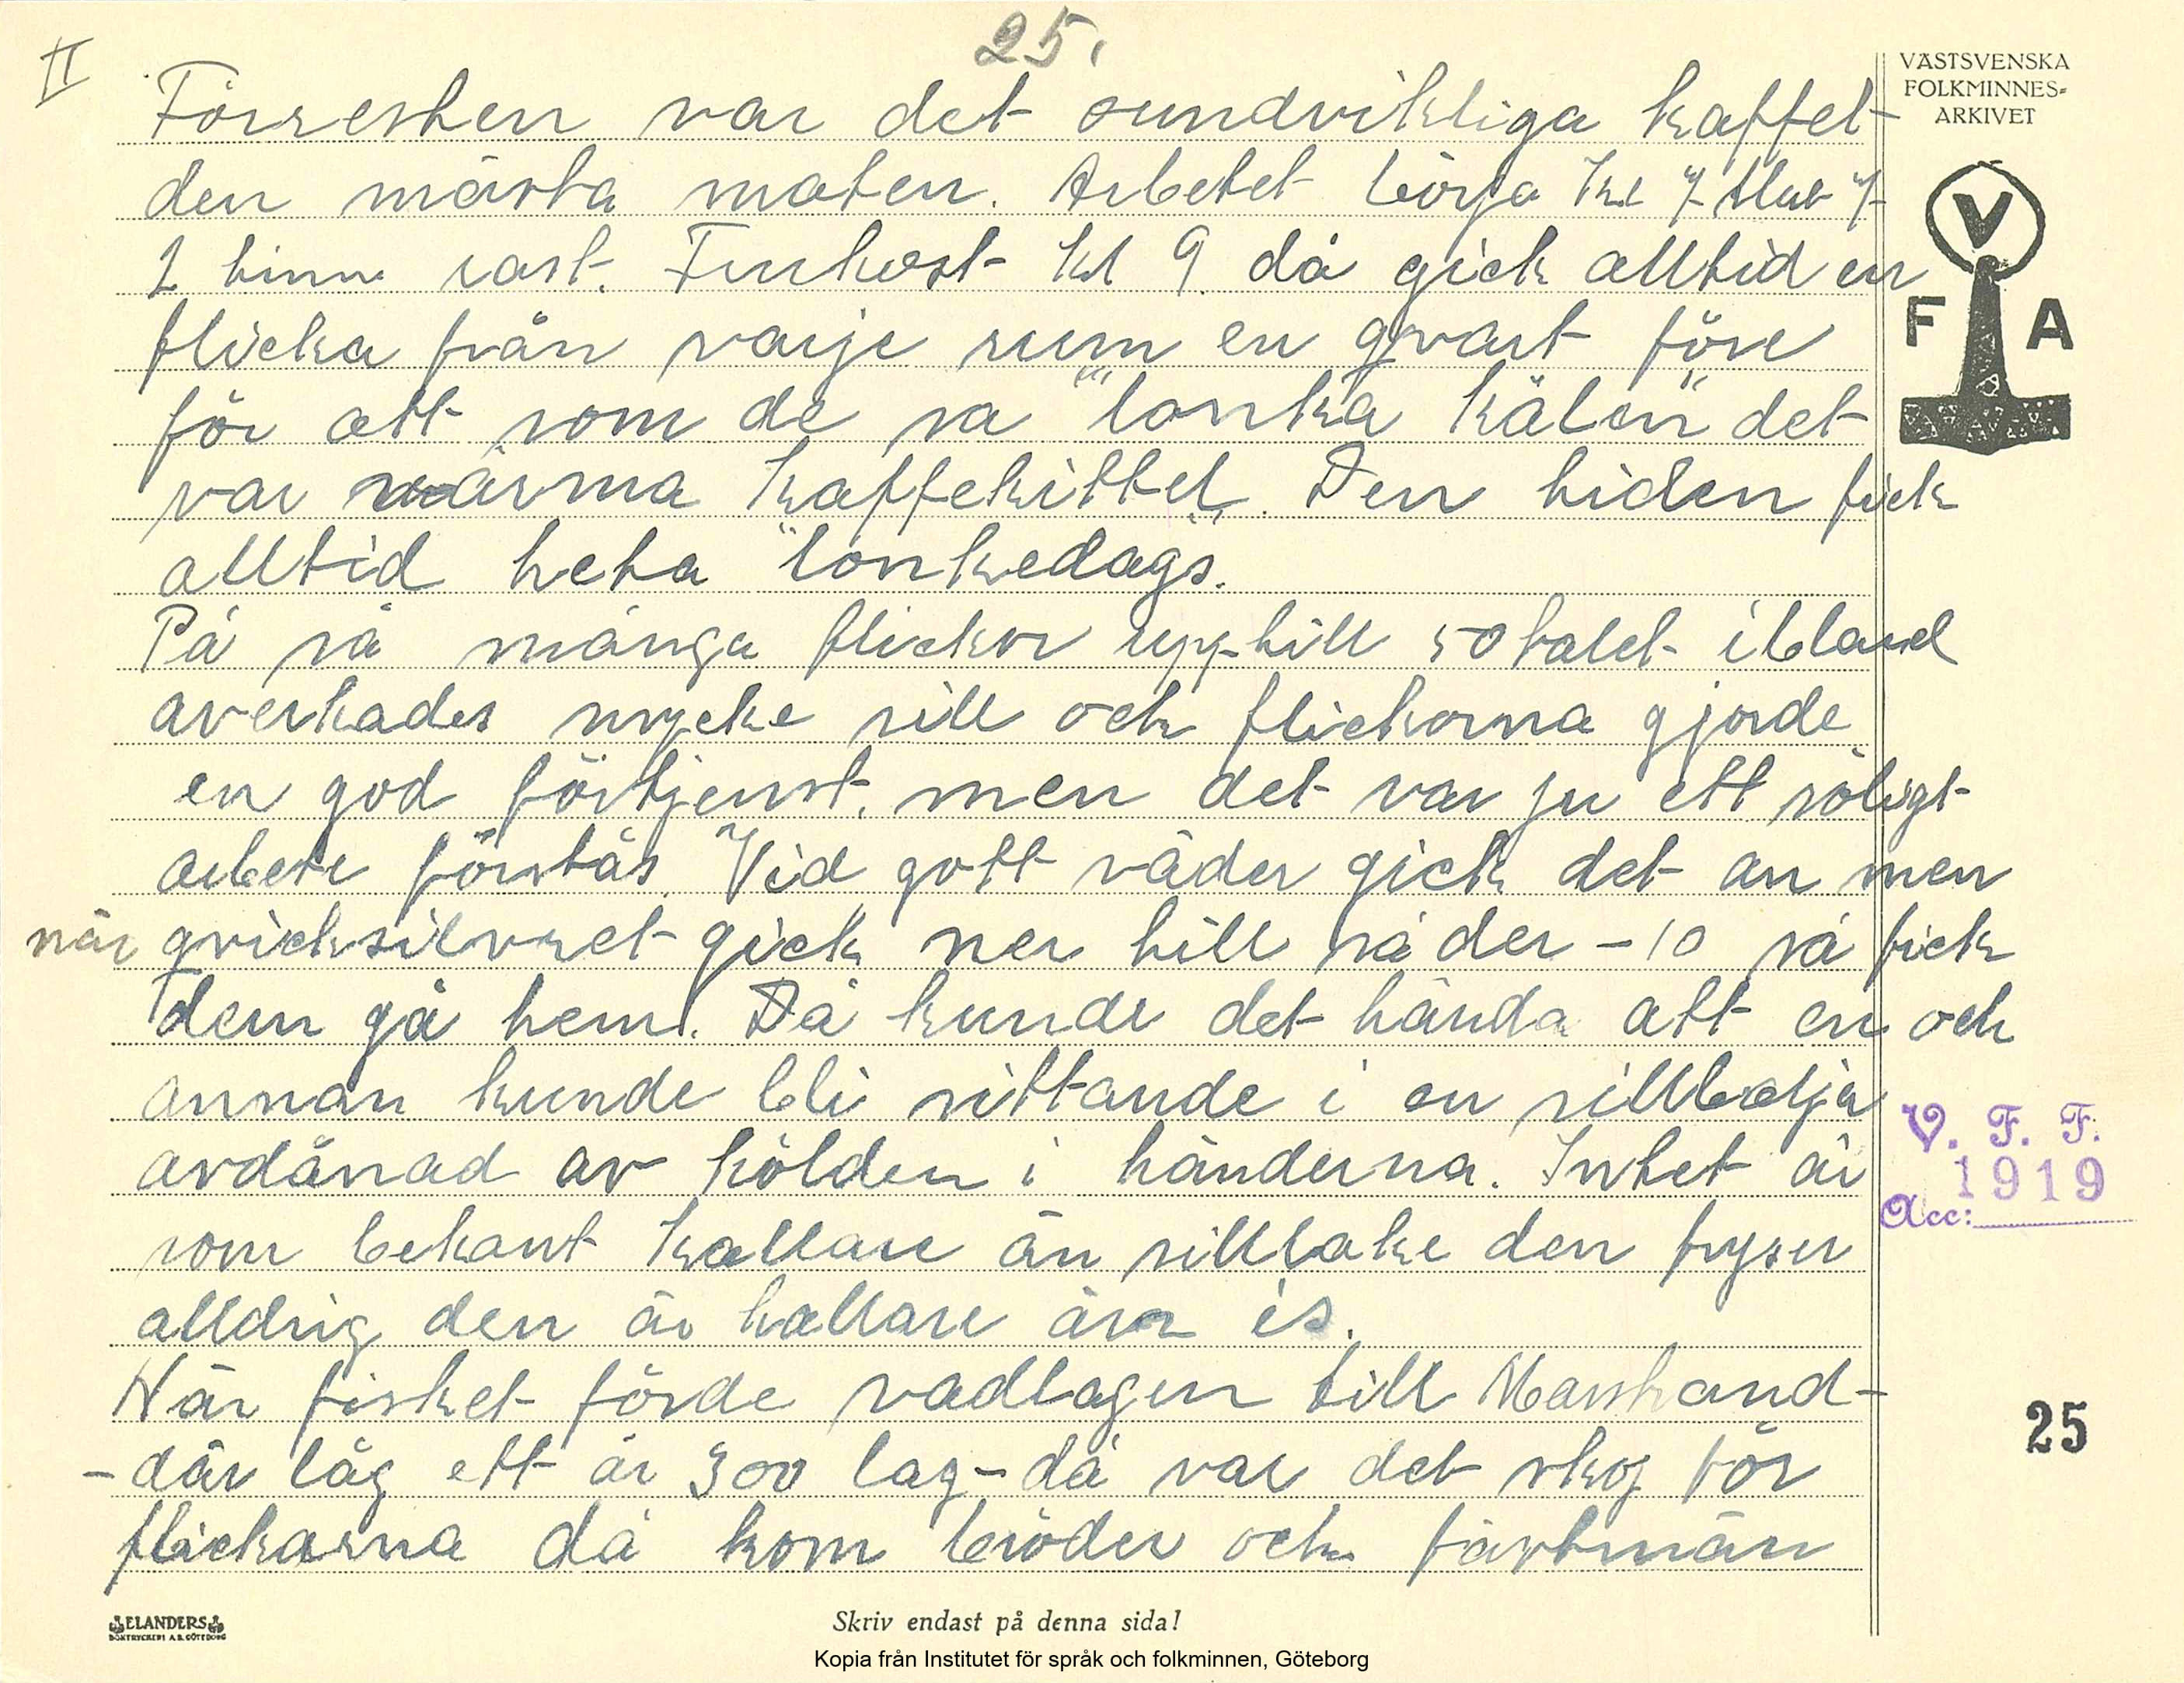 II
25.
VÄSTSVENSKA
FOLKMINNES-
ARKIVET
V
F A
Förresten var det oundvikliga kaffet
den mästa maten. Arbetet börja kl 7 slut 7
2 timm rast. Frukost kl 9. då gick alltid en
flicka från varje rum en qvart före
för att som de sa "lonka kälen" det
var värma kaffekittel. Den tiden fick
alltid heta "lonkedags".
På så många flickor upp till 50 talet ibland
averkades mycke sill och flickorna gjorde
en god förtjenst. men det var ju ett söligt
arbete förstås. Vid gott väder gick det an men
när qvicksilvret gick ner till så der -10 så fick
dem gå hem. Då kunde det hända att en och
annan kunde bli sittande i en sillbalja
avdånad av kölden i händerna. Intet är
som bekant kallare än sillake den fryser
alldrig den är kallare än is.
När fisket förde vadlagen till Marstrand-
-där låg ett år 300 lag-då var det skoj för
flickorna då kom bröder och fästmän
V. F. F.
1919
Acc:
25
ELANDERS
BOKTRYCKERI A.B. GÖTEBORG
Skriv endast på denna sida!
Kopia från Institutet för språk och folkminnen, Göteborg